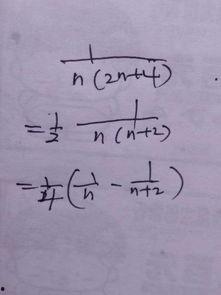 1/(n(2n+4))
=1/2 1/(n(n+2))
=1/4(1/n - 1/(n+2))